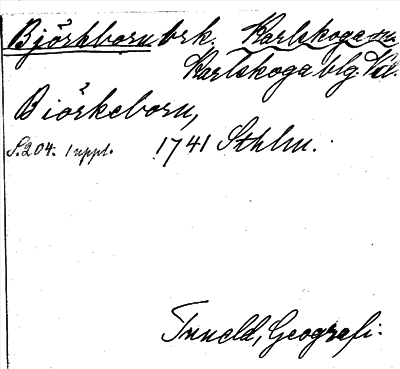 Björkborn brk. Karlskoga sn.
Karlskoga blg. Vil.
Biörkeborn,
S. 204. 1 uppl. 1741 Sthlm.
Tuneld, Geografi.